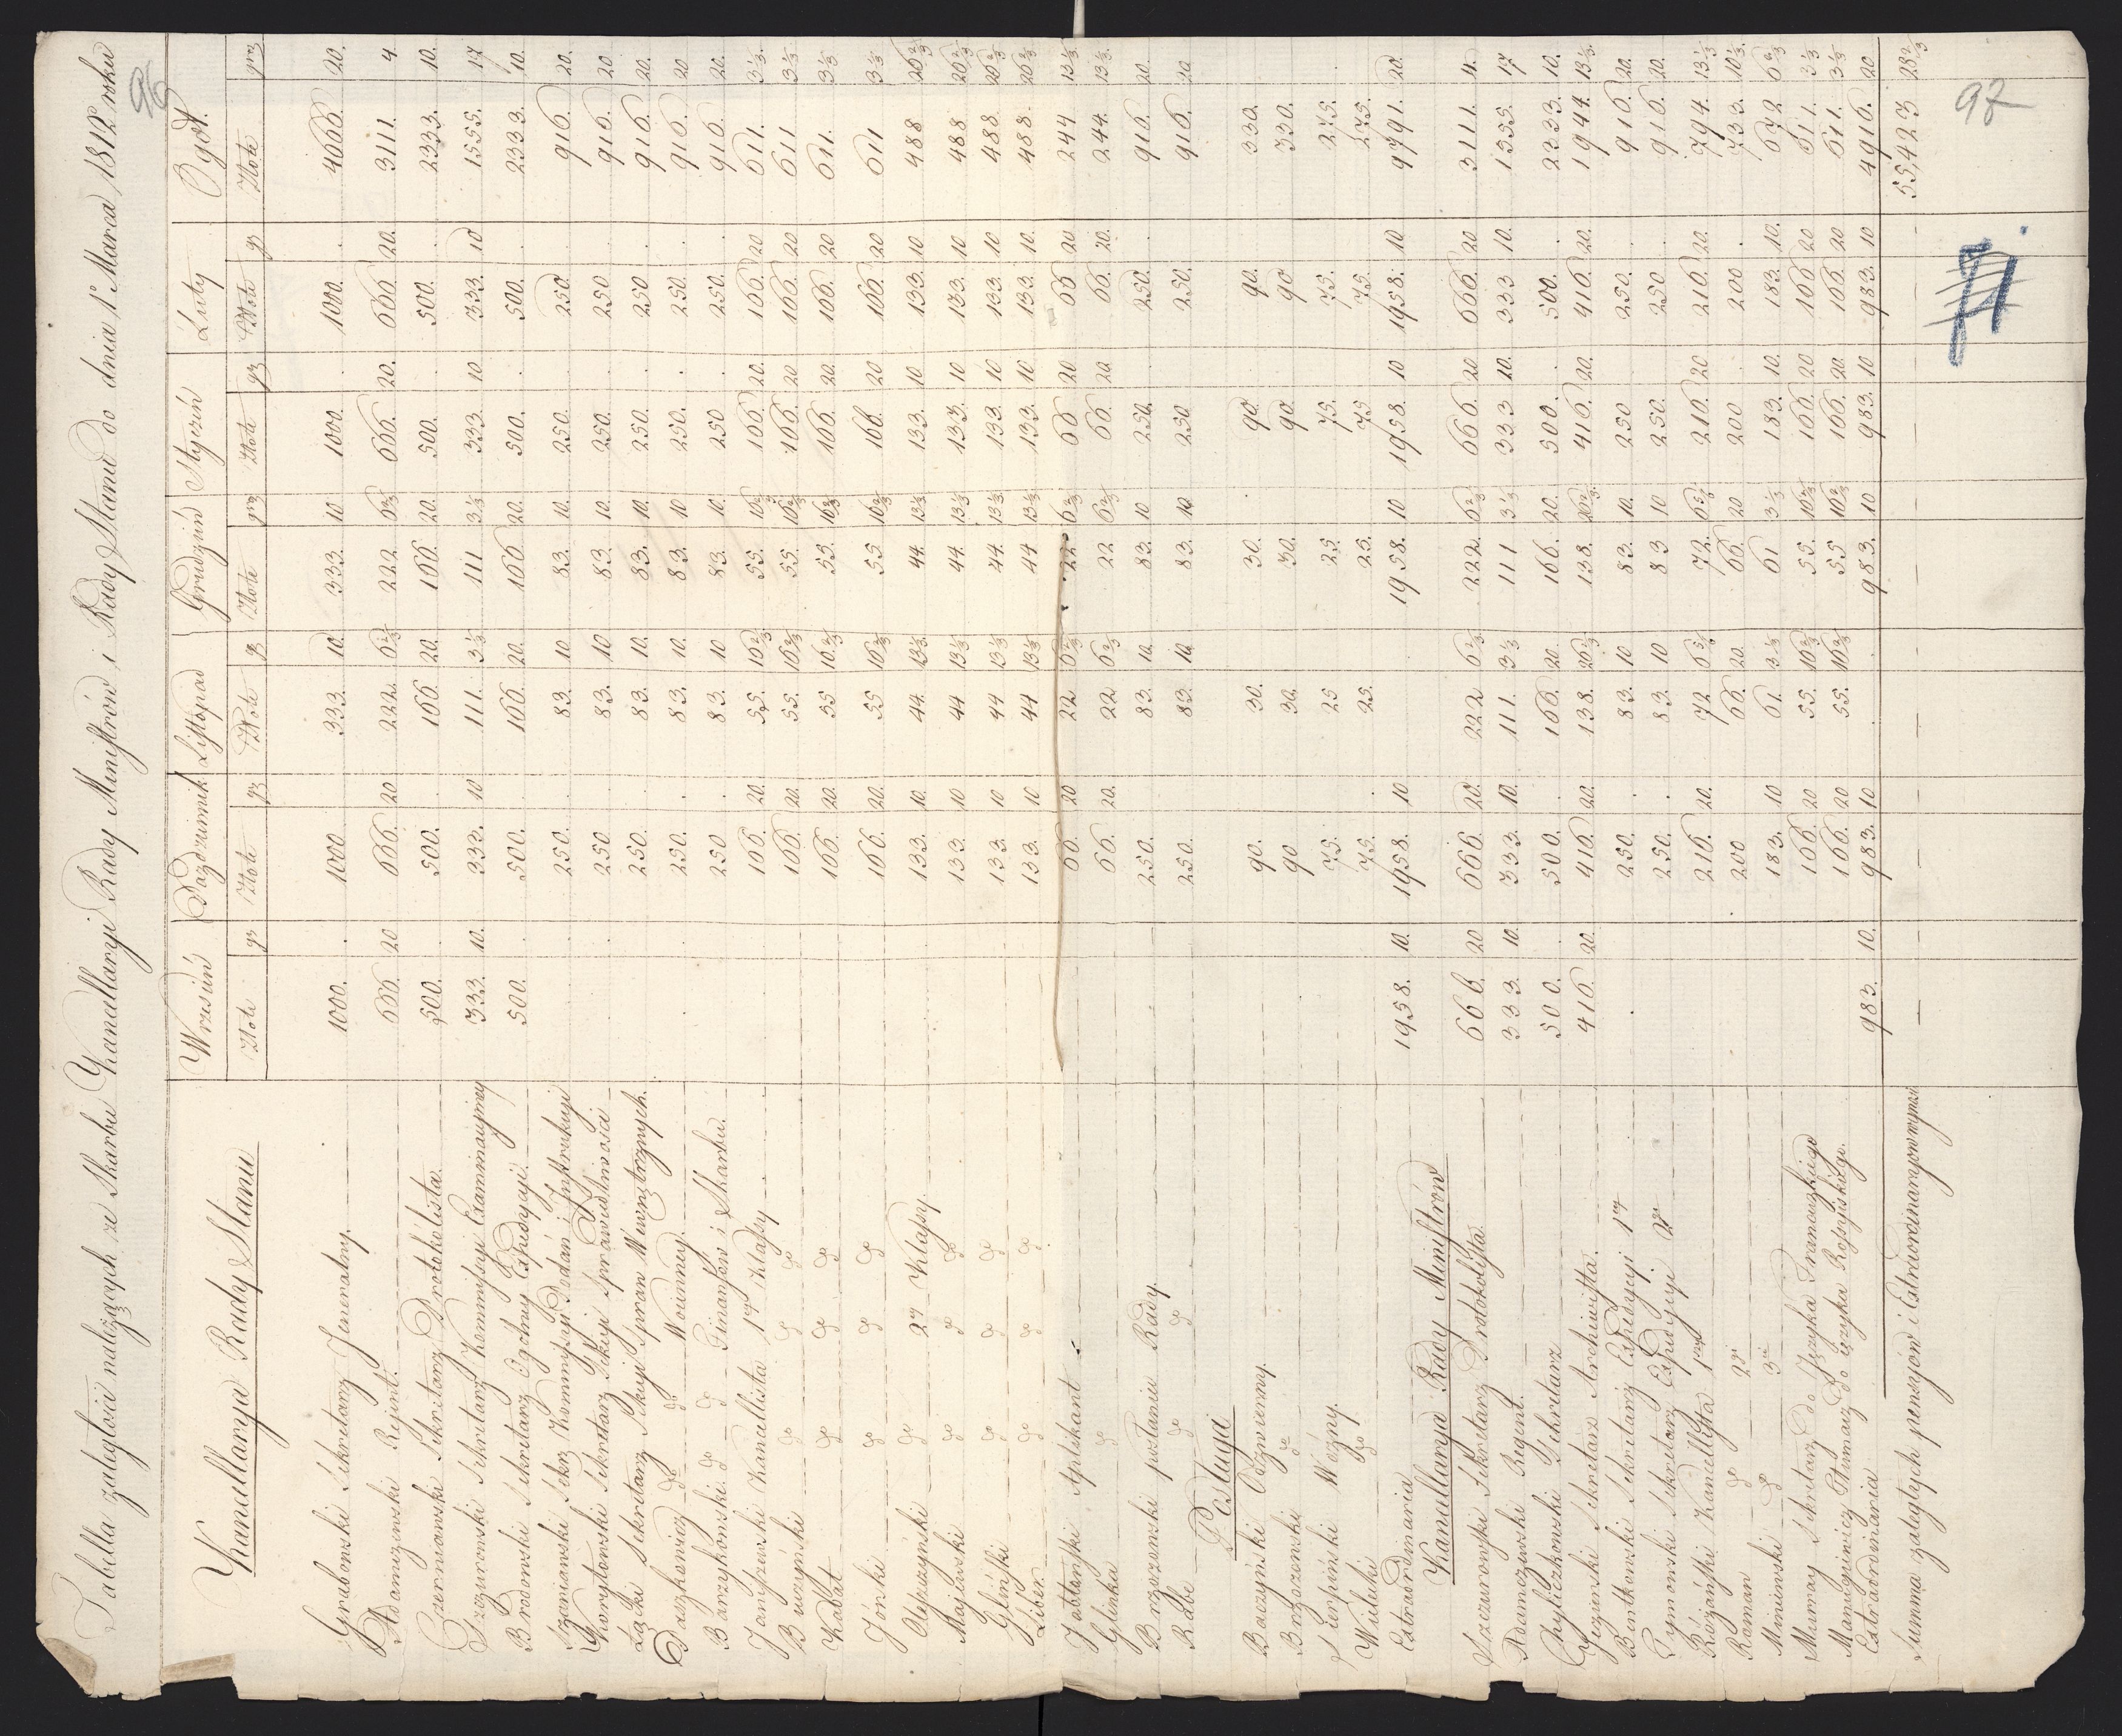 Tabella zaległości należących ze Skarbu Kancellaryi Rady Ministrów i Rady Stanu do dnia 1º Marca 1812 roku
96
Wrzesień Październik Listopad Grudzień Styczeń Luty Ogół.
Złote gr Złote gr Złote gr Złote grz Złote gr Złote gr Złote grz
Kancellarya Rady Stanu
Grabowski Sekretarz Jeneralny. 1000. . 1000 . 333. 10. 333. 10 1000. . 1000. . 4666. 20.
Adamczewski Rejent. 666. 20 666. 20 222. 6⅔ 222 6⅔ 666. 20. 666 20. 3111. 4
Czerniawski Sekretarz Protokolista 500. . 500. . 166 20. 166. 20. 500. . 500. . 2333. 10.
Szczurowski Sekretarz Kommissyi Examinacyiney 333. 10. 333. 10 111. 3⅓ 111 3⅓ 333. 10 333. 10 1555. 17
Brodowski Sekretarz Ogólney Expedycyi. 500. . 500. . 166. 20. 166 20. 500. . 500. . 2333. 10.
Szaniawski Sekrz Kommissyi Podań i Instrukcyi . . 250. . 83. 10 83. 10. 250. . 250 . 916. 20.
Korytowski Sekretarz Sekcyi Sprawiedliwości . . 250 . 83. 10 83. 10. 250. . 250 . 916. 20
Łącki Sekretarz Sekcyi Spraw Wewnętrznych. . . 250. . 83. 10. 83. 10. 250. . 250 . 916. 20.
Daszkowicz do do Woienney. 250. . 83. 10. 83. 10 250. . 250. . 916. 20
Barzykowski do do Finansów i Skarbu. 250 . 83. 10 83. 10. 250 . 250. . 916. 20.
Janiszewski Kancellista 1ey Klassy 166. 20. 55. 16⅔ 55. 16⅔ 166. 20. 166. 20 611. 3⅓.
Buczyński do do do 166. 20. 55. 16⅔ 55. 16⅔ 166. 20 166. 20 611 3⅓
Kabat do do do 166. 20. 55 16⅔ 55. 16⅔ 166. 20. 166. 20 611. 3⅓
Jónki do do do 166. 20. 55 16⅔ 55 16⅔ 166. 20 166. 20 611 3⅓
do 2ey Klassy 133. 10. 44. 13⅓. 44. 13⅓ 133. 10 133. 10 488 20⅔
Majewski do do do 133. 10 44 13⅓ 44. 13⅓ 133. 10 133. 10 488 20⅔
Gliński do do do 133. 10 44 13⅓ 44. 13⅓. 133. 10 133. 10 488. 20⅔
Libert do do do 133. 10 44 13⅓ 44 13⅓ 133. 10 133. 10. 488. 20⅔
Jabłoński Aplikant 66. 20 22 6⅔ 22 6⅔ 66 20 66 20 244 13⅓
Glinka do 66. 20. 22 6⅔ 22 6⅔ 66. 20 66. 20. 244. 13⅓.
Brzozowski posłaniec Rady. 250. 83. 10. 83. 10 250. 250. . 916. 20.
Rabe do do 250. 83. 10. 83. 10 250 250. . 916. 20
Posługa
Baczyński Odźwierny. 90. 30. 30. 90. 90. 330.
Brzozowski do 90 30. 30. 90. 90 330.
Sierpiński Woźny. 75. 25 25. 75. 75. 275. .
Wielecki do 75. . 25. 25. 75 75. 275. .
Extraordinaria 1958. 10. 1958. 10 1958. 10 1958. 10 1958. 10 9791. 20.
Kancellarya Rady Ministrów
Szczurowski Sekretarz Protokolista. 666. 20 666 20. 222 6⅔. 222. 6⅔ 666. 20 666. 20 3111. 4.
Adamczewski Regent. 333. 10. 333. 10. 111. 3⅓ 111 3⅓ 333 10. 333 10. 1555. 17
Chyliczkowski Sekretarz 500. . 500. . 166. 20. 166. 20. 500. . 500. . 2333. 10.
Sekretarz Archiwista. 416. 20. 416. 20. 138. 26⅔ 138. 26⅔. 416. 20. 416. 20. 1944. 13⅓.
Bentkowski Sekretarz Expedycyi 1ey . 250. . 83. 10 83. 10. 250 . 250. . 916. 20.
Tymowski Sekretarz Expedycyi 2ey 250. . 83. 10 83 10 250. . 250 . 916. 20.
Różański Kancellista 1szy 216. 20. 72 6⅔ 72. 6⅔ 216. 20 216. 20. 794. 13⅓
Roman do 2gi 200 66. 20. 66. 20 200 200 . 733. 10⅓.
Miniewski do 3ci 183. 10 61. 3⅓ 61 3⅓ 183. 10. 183. 10. 672 6⅔
Murray Sekretarz do Języka Francuzkiego 166. 20 55. 16⅔ 55. 16⅔ 166. 20 166 20 611. 3⅓
Tłumacz do języka Rossyiskiego. 166. 20 55. 16⅔ 55 16⅔ 166. 20. 166. 20 611. 3⅓
Extraordinaria 983. 10. 983. 10 . . 983. 10 983. 10 983. 10 4916. 20
Summa zaległych pensyjów i Extraordinaryów wynosi — — — — — — 55,423 28⅔
97
71.